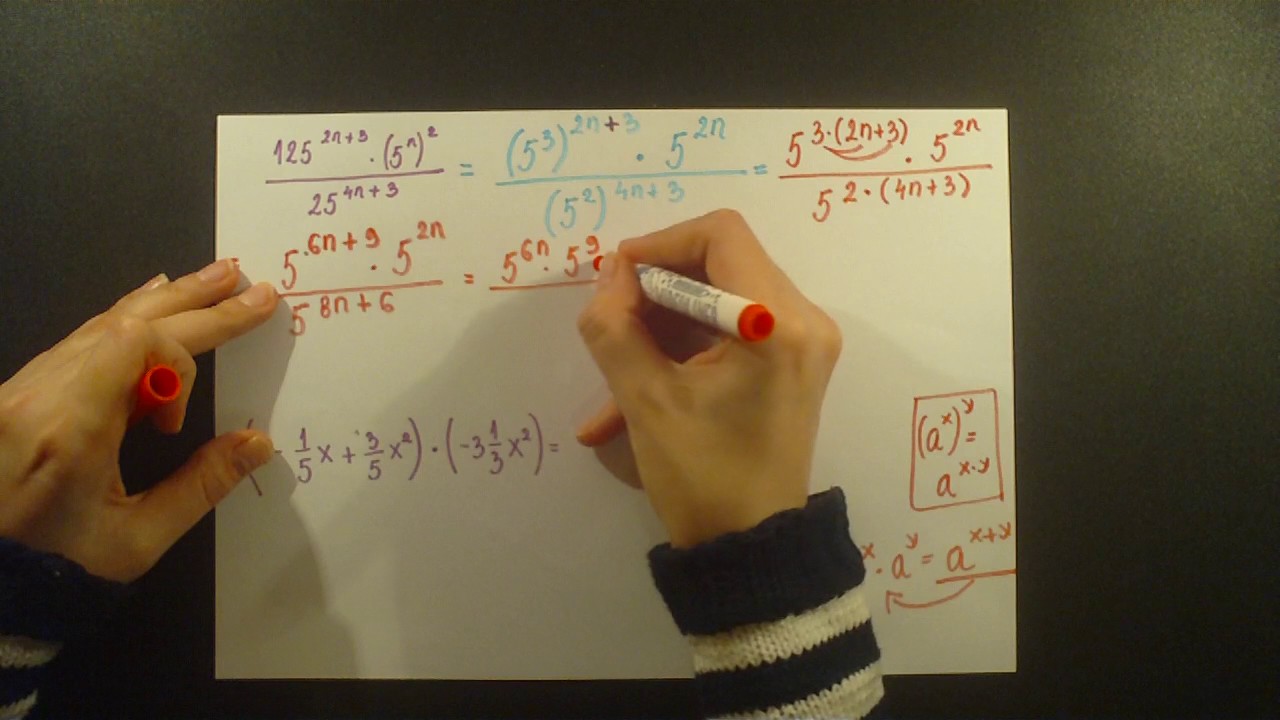 125^{2n+3} · (5^n)^2 / 25^{4n+3} = (5^3)^{2n+3} · 5^{2n} / (5^2)^{4n+3} = 5^{3·(2n+3)} · 5^{2n} / 5^{2·(4n+3)}
5^{6n+9} · 5^{2n} / 5^{8n+6} = 5^{6n} · 5^9
1/5 x + 3/5 x^2) · (-3 1/3 x^2) =
(a^x)^y =
a^{x·y}
x · a^y = a^{x+y}